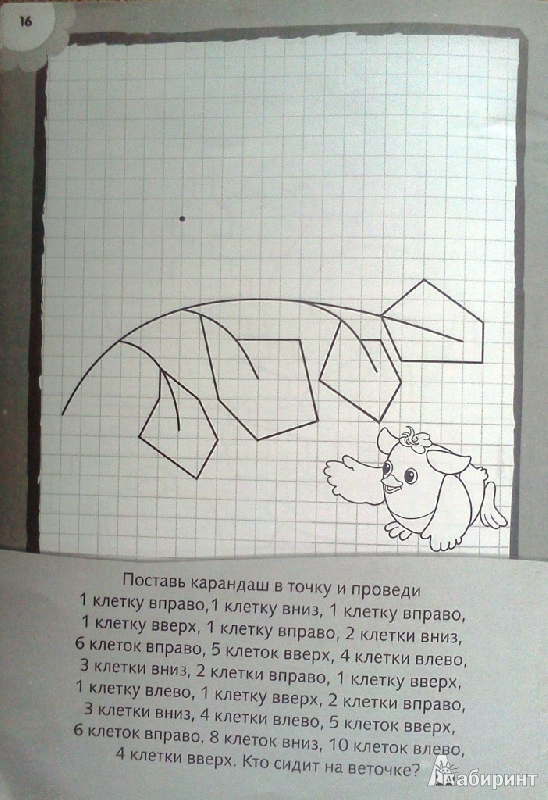 16
Поставь карандаш в точку и проведи
1 клетку вправо,1 клетку вниз, 1 клетку вправо,
1 клетку вверх, 1 клетку вправо, 2 клетки вниз,
6 клеток вправо, 5 клеток вверх, 4 клетки влево,
3 клетки вниз, 2 клетки вправо, 1 клетку вверх,
1 клетку влево, 1 клетку вверх, 2 клетки вправо,
3 клетки вниз, 4 клетки влево, 5 клеток вверх,
6 клеток вправо, 8 клеток вниз, 10 клеток влево,
4 клетки вверх. Кто сидит на веточке?
Лабиринт